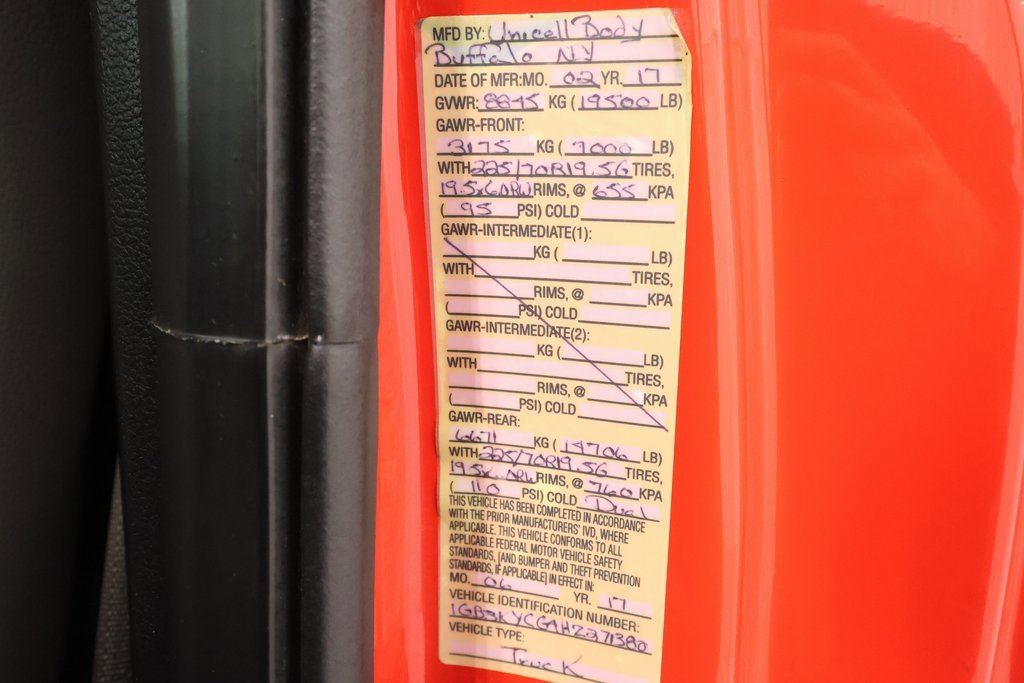 MFD BY: Unicell Body
Buffalo NY
DATE OF MFR:MO. 02 YR. 17
GVWR: 8845 KG ( 19500 LB)
GAWR-FRONT:
3175 KG ( 7000 LB)
WITH 225/70R19.5G TIRES,
19.5x6.0RW RIMS, @ 655 KPA
( 95 PSI) COLD
GAWR-INTERMEDIATE(1):
KG ( LB)
WITH TIRES,
RIMS, @ KPA
( PSI) COLD
GAWR-INTERMEDIATE(2):
KG ( LB)
WITH TIRES,
RIMS, @ KPA
( PSI) COLD
GAWR-REAR:
6671 KG ( 14706 LB)
WITH 225/70R19.5G TIRES,
RIMS, @ 760 KPA
( 110 PSI) COLD Dual
THIS VEHICLE HAS BEEN COMPLETED IN ACCORDANCE
WITH THE PRIOR MANUFACTURERS' IVD, WHERE
APPLICABLE. THIS VEHICLE CONFORMS TO ALL
APPLICABLE FEDERAL MOTOR VEHICLE SAFETY
STANDARDS, [AND BUMPER AND THEFT PREVENTION
STANDARDS, IF APPLICABLE] IN EFFECT IN:
MO. 06 YR. 17
VEHICLE IDENTIFICATION NUMBER:
1GB3KYCGAHZ271380
VEHICLE TYPE:
Truck